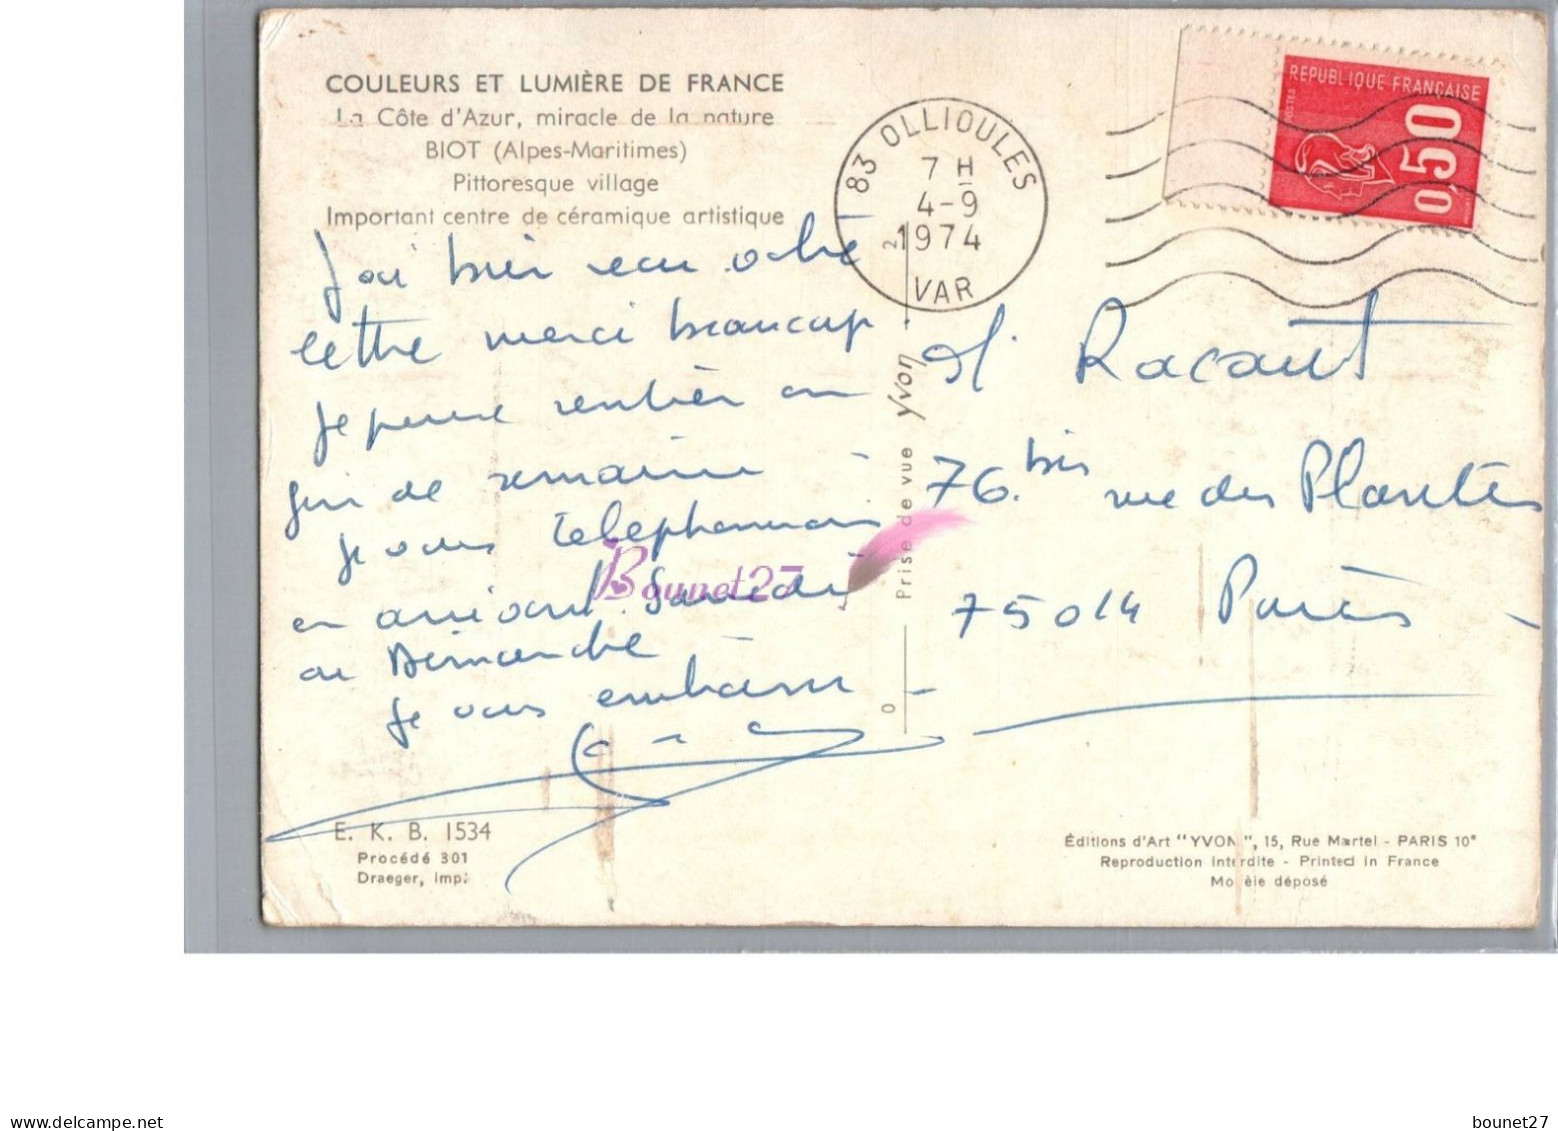 COULEURS ET LUMIÈRE DE FRANCE
La Côte d'Azur, miracle de la nature
BIOT (Alpes-Maritimes)
Pittoresque village
Important centre de céramique artistique
J'ai bien recu votre
lettre merci beaucoup
je pense rentrer en
fin de semaine
je vous telephonerais
en arrivant Samedi
ou Dimanche
je vous embrasse
E. K. B. 1534
Procédé 301
Draeger, imp.
83 OLLIOULES
7 H
4-9
1974
VAR
REPUBLIQUE FRANÇAISE
POSTES
0,50
Prise de vue Yvon
M. Racaut
76 bis rue des Plantes
75014 Paris
Éditions d'Art "YVON", 15, Rue Martel - PARIS 10e
Reproduction interdite - Printed in France
Modèle déposé
Bounet27
delcampe.net
bounet27